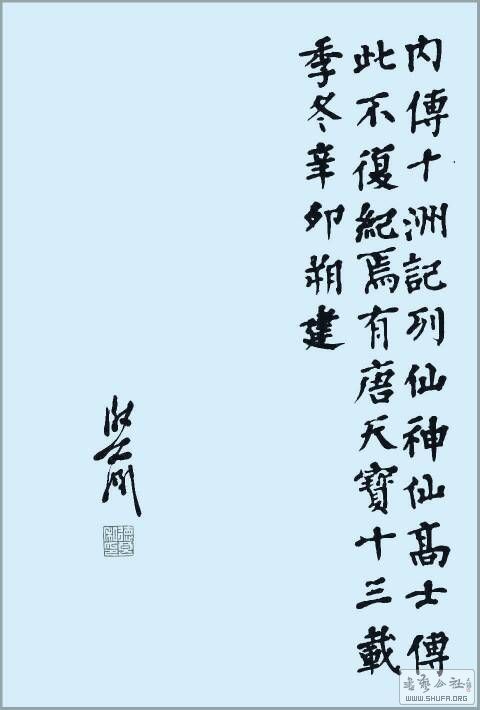 内傳十洲記列仙神仙高士傳
此不復紀焉有唐天寶十三載
季冬辛卯朔建
書藝公社
WWW.SHUFA.ORG